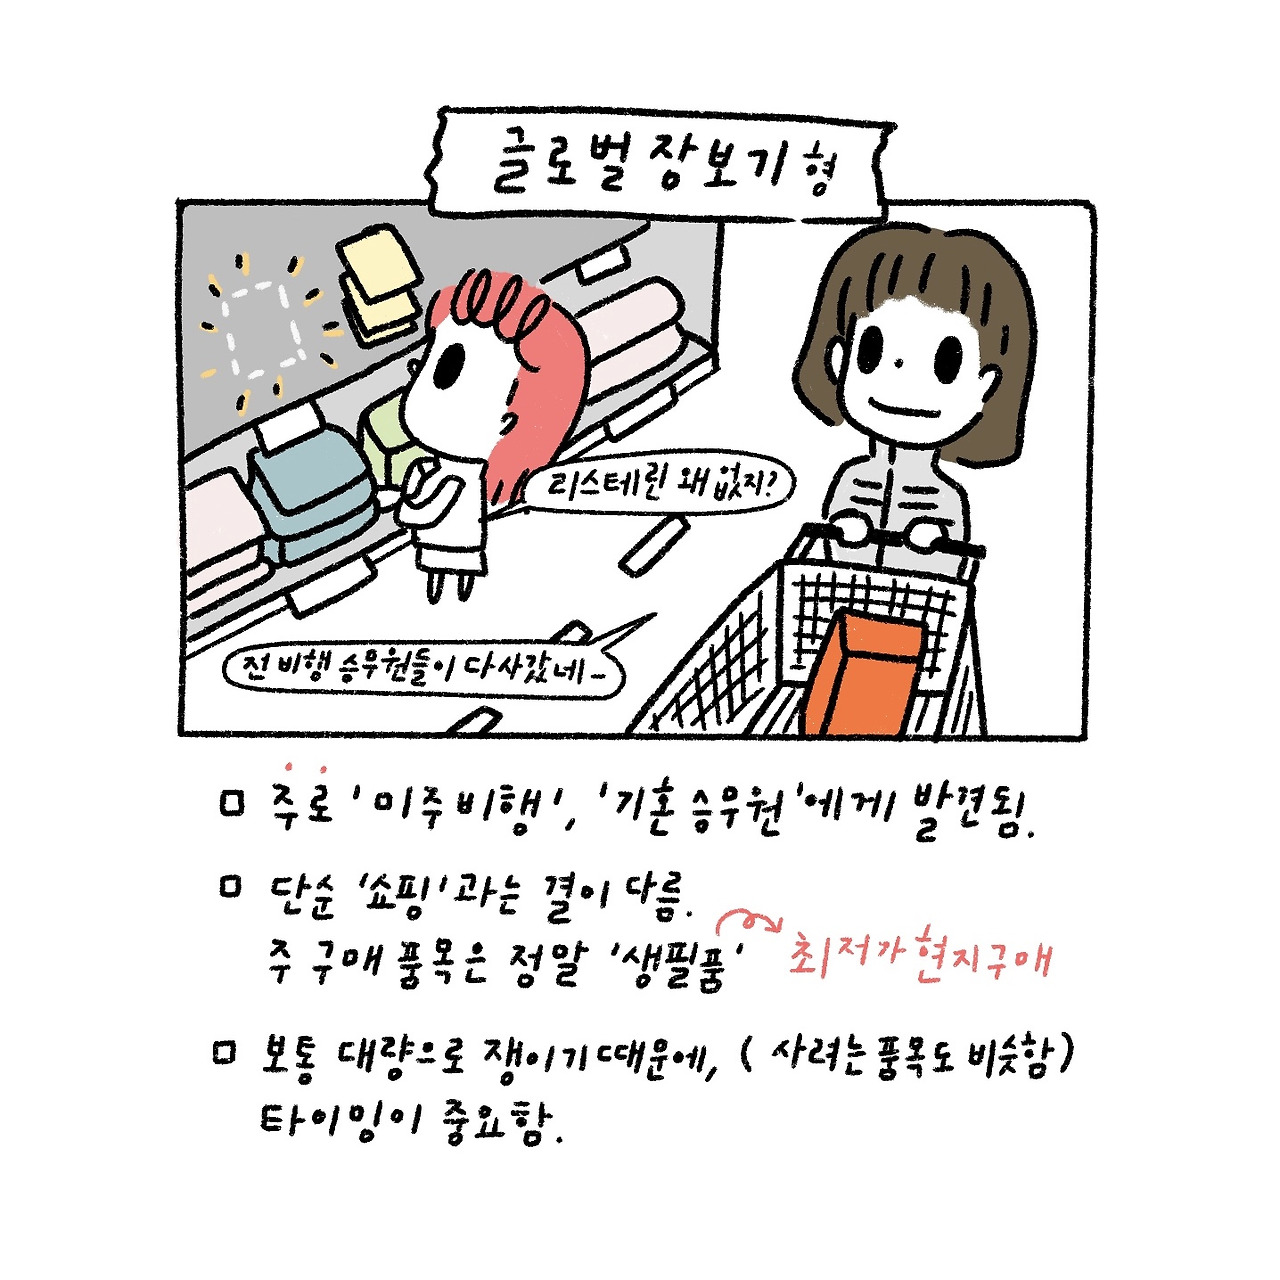 글로벌 장보기형
리스테린 왜 없지?
전 비행 승무원들이 다 사갔네~
□ 주로 '미주 비행', '기혼 승무원'에게 발견됨.
□ 단순 '쇼핑'과는 결이 다름.
주 구매 품목은 정말 '생필품' 최저가 현지구매
□ 보통 대량으로 쟁이기 때문에, (사려는 품목도 비슷함)
타이밍이 중요함.